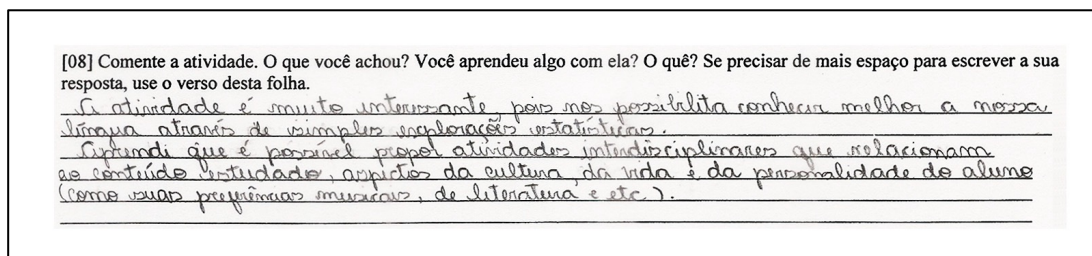 [08] Comente a atividade. O que você achou? Você aprendeu algo com ela? O quê? Se precisar de mais espaço para escrever a sua
resposta, use o verso desta folha.
A atividade é muito interessante, pois nos possibilita conhecer melhor a nossa
língua através de simples explorações estatísticas.
Aprendi que é possível propor atividades interdisciplinares que relacionam
ao conteúdo estudado, aspectos da cultura, da vida e da personalidade do aluno
(como suas preferências musicais, de literatura e etc).